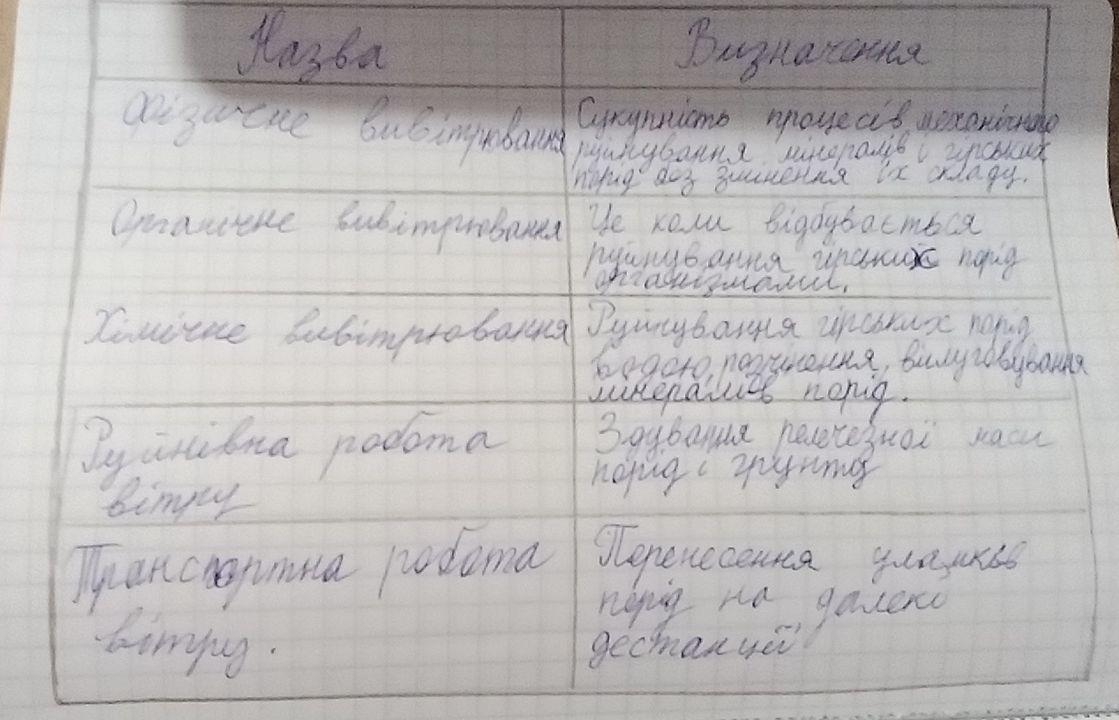 Назва
Визначення
Фізичне вивітрювання
Сукупність процесів механічного
руйнування мінералів і гірських
порід без змінення їх складу.
Органічне вивітрювання
Це коли відбувається
руйнування гірських порід
організмами.
Хімічне вивітрювання
Руйнування гірських порід
водою, розчинення, вилуговування
мінералів порід.
Руйнівна робота
вітру
Здування маси
порід і грунту
Транспортна робота
вітру.
Перенесення уламків
порід на далекі
дестанції